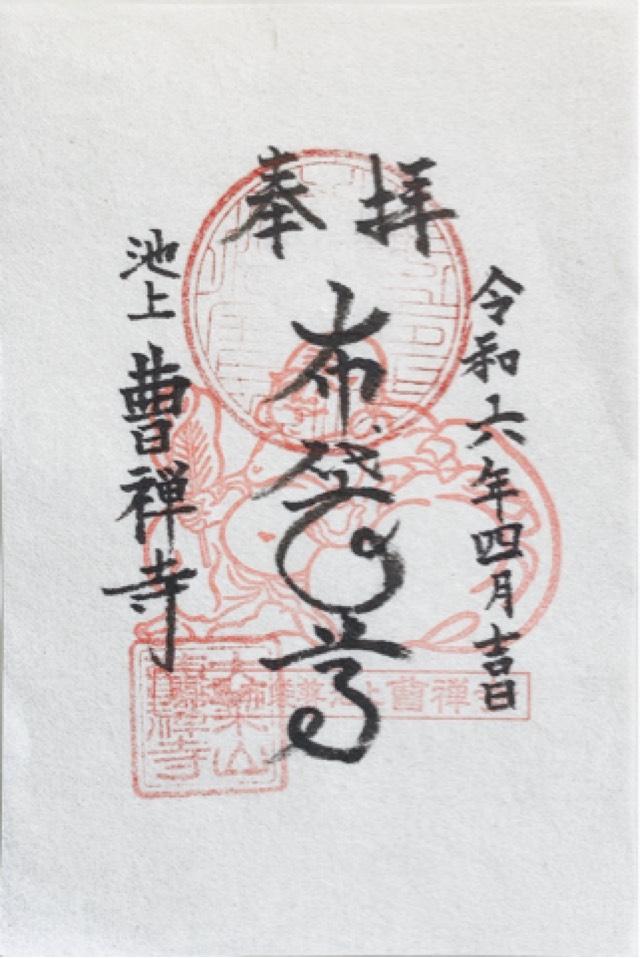 奉拝
令和六年四月吉日
布袋尊
池上 曹禅寺
曹禅寺